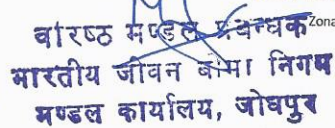 वरिष्ठ मण्डल प्रबन्धक Zona
भारतीय जीवन बीमा निगम
मण्डल कार्यालय, जोधपुर